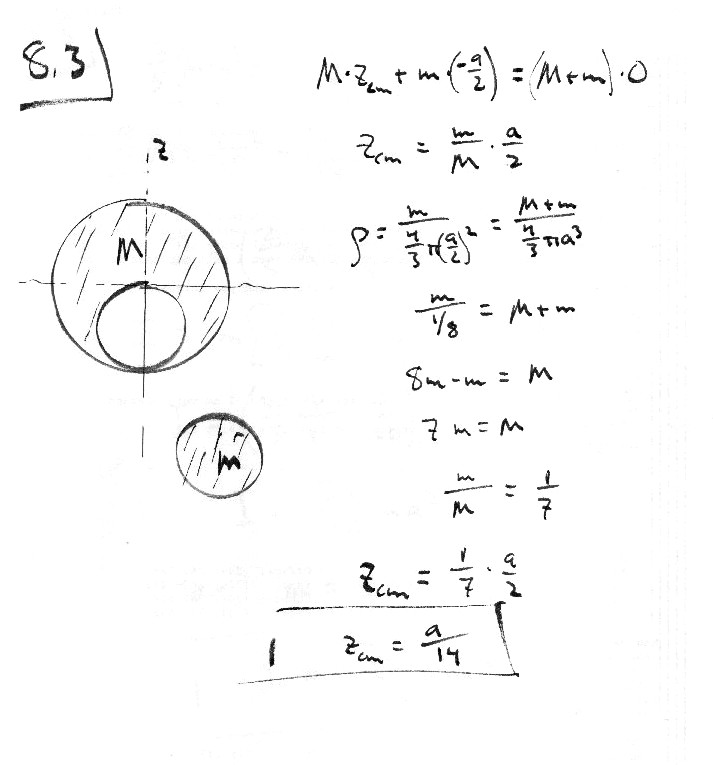 8.3
M·z_cm + m·(-a/2) = (M+m)·0
z_cm = m/M · a/2
z
ρ = m/(4/3 π(a/2)^2) = (M+m)/(4/3 πa^3)
M
m/(1/8) = M+m
8m-m = M
7m = M
m
m/M = 1/7
z_cm = 1/7 · a/2
z_cm = a/14